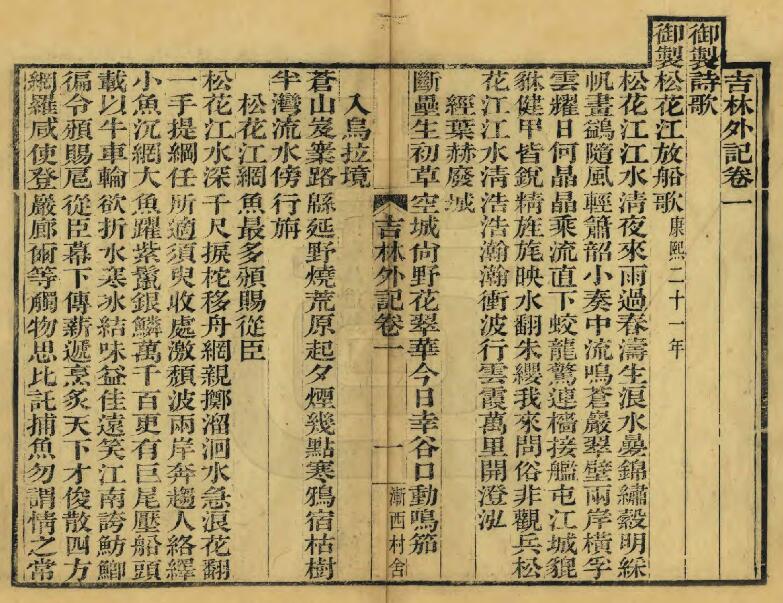 吉林外記卷一
御製詩歌
御製松花江放船歌康熙二十一年
松花江江水清夜來雨過春濤生浪水疊錦繡縠明綵
帆畫鷁隨風輕簫韶小奏中流鳴蒼巖翠壁兩岸橫孚
雲耀日何晶晶乘流直下蛟龍驚連檣接艦屯江城貔
貅健甲皆銳精旌旄映水翻朱纓我來問俗非觀兵松
花江江水清浩浩瀚瀚衝波行雲霞萬里開澄泓
經葉赫廢城
斷壘生初草空城尙野花翠華今日幸谷口動鳴笳
吉林外記卷一
一
漸西村舍
入烏拉境
蒼山岌嶪路緜延野燒荒原起夕煙幾點寒鴉宿枯樹
半灣流水傍行旃
松花江網魚最多頒賜從臣
松花江水深千尺捩柁移舟網親擲溜洄水急浪花翻
一手提綱任所適須臾收處激頹波兩岸奔趨人絡繹
小魚沉網大魚躍紫鬣銀鱗萬千百更有巨尾壓船頭
載以牛車輪欲折水寒冰結味益佳遠笑江南誇魴鯽
徧令頒賜扈從臣幕下傳薪遞烹炙天下才俊散四方
網羅咸使登嚴廊爾等觸物思比託捕魚勿謂情之常